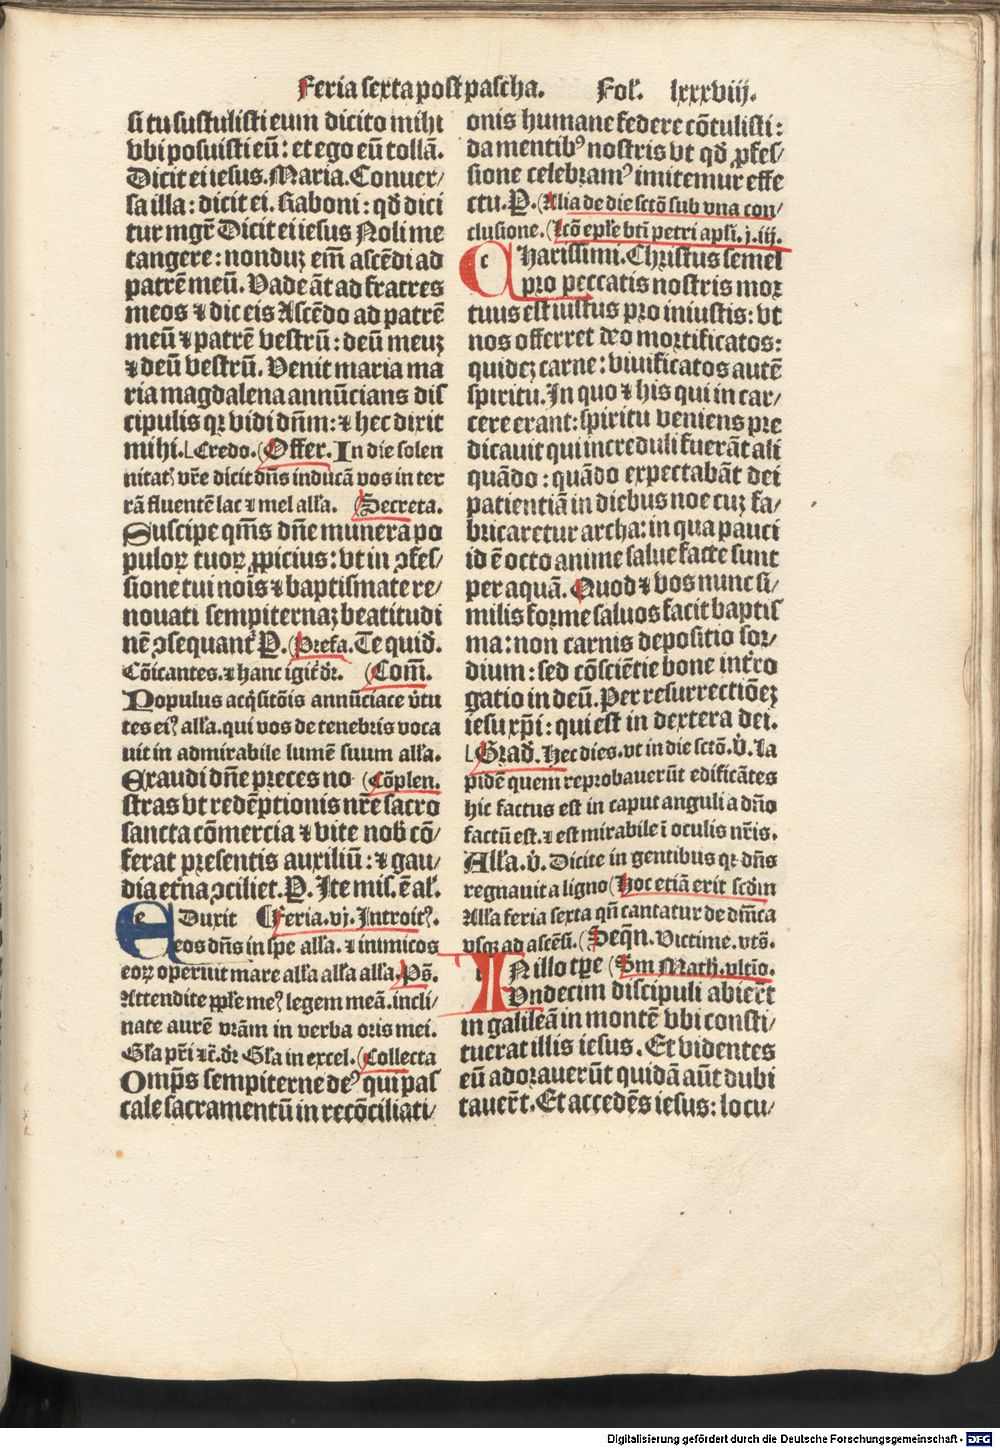 Feria sexta post pascha. Fol'. lxxxviij.
si tu sustulisti eum dicito mihi
vbi posuisti eū: et ego eū tollā.
Dicit ei iesus. Maria. Conuer/
sa illa: dicit ei. Raboni: qd̄ dici
tur mgr̄ Dicit ei iesus Noli me
tangere: nonduȝ em̄ ascēdi ad
patrē meū. Vade āt ad fratres
meos ⁊ dic eis Ascēdo ad patrē
meū ⁊ patrē vestrū: deū meuȝ
⁊ deū vestrū. Venit maria ma
ria magdalena annūcians dis
cipulis qꝛ vidi dn̄m: ⁊ hec dixit
mihi. Credo. (Offer. In die solen
nitatꝭ vr̄e dicit dn̄s inducā vos in ter
rā fluentē lac ⁊ mel all'a. (Secreta.
Suscipe qm̄s dn̄e munera po
puloꝝ tuoꝝ ꝓpicius: vt in ꝯfes/
sione tui nois̄ ⁊ baptismate re/
nouati sempiternaȝ beatitudi
nē ꝯsequant᷑ P. (Prefa. Te quid̄.
Cōicantes. ⁊ hanc igit᷑ dr̄. (Com̄.
Populus acq̄sitōis annūciace v̄tu
tes eiꝰ all'a. qui vos de tenebris voca
uit in admirabile lumē suum all'a.
Exaudi dn̄e preces no (Cōplen.
stras vt redēptionis nr̄e sacro
sancta cōmercia ⁊ vite nob̄ cō/
ferat presentis auxiliū: ⁊ gau/
dia et̄na ꝯciliet. P. Ite mis. ē al'.
e Duxit (Feria. vj. Introitꝰ.
eos dn̄s in spe all'a. ⁊ inimicos
eoꝝ operuit mare all'a all'a all'a. Ps̄.
Attendite ppl'e meꝰ legem meā. incli/
nate aurē vrām in verba oris mei.
Gl'a pr̄i ⁊c̄. dr̄ Gl'a in excel. (Collecta
Omp̄s sempiterne deꝰ qui pas
cale sacramentū in recōciliati/
onis humane federe cōtulisti:
da mentibꝰ nostris vt qd̄ ꝓfes/
sione celebramꝰ imitemur effe
ctu. P. (Alia de die sctō sub vna con/
clusione. (Lcō epl'e bt̄i petri apl'i. j. iij.
c Harissimi. Christus semel
pro peccatis nostris mor
tuus est iustus pro iniustis: vt
nos offerret deo mortificatos:
quideȝ carne: viuificatos autē
spiritu. In quo ⁊ his qui in car/
cere erant: spiritu veniens pre
dicauit qui increduli fuerāt ali
quādo: quādo expectabāt dei
patientiā in diebus noe cuȝ fa/
bricaretur archa: in qua pauci
id ē octo anime salue facte sunt
per aquā. Quod ⁊ vos nunc si/
milis forme saluos facit baptis
ma: non carnis depositio sor/
dium: sed cōsciētie bone int̄ro
gatio in deū. Per resurrectiōeȝ
iesu xp̄i: qui est in dextera dei.
Grad̄. Hec dies. vt in die sctō. v̄. La
pidē quem reprobauerūt edificātes
hic factus est in caput anguli a dn̄o
factū est. ⁊ est mirabile ī oculis nr̄is.
All'a. v̄. Dicite in gentibus qꝛ dn̄s
regnauit a ligno (Hoc etiā erit scd̄m
All'a feria sexta qn̄ cantatur de dn̄ica
vsqꝫ ad ascēsi. (Seqn̄. Victime. vts̄.
i N illo tp̄e (Sm Math̄. vltīo.
Vndecim discipuli abier̄t
in galileā in montē vbi consti/
tuerat illis iesus. Et videntes
eū adorauerūt quidā aūt dubi
tauer̄t. Et accedēs iesus: locu/
Digitalisierung gefördert durch die Deutsche Forschungsgemeinschaft - DFG